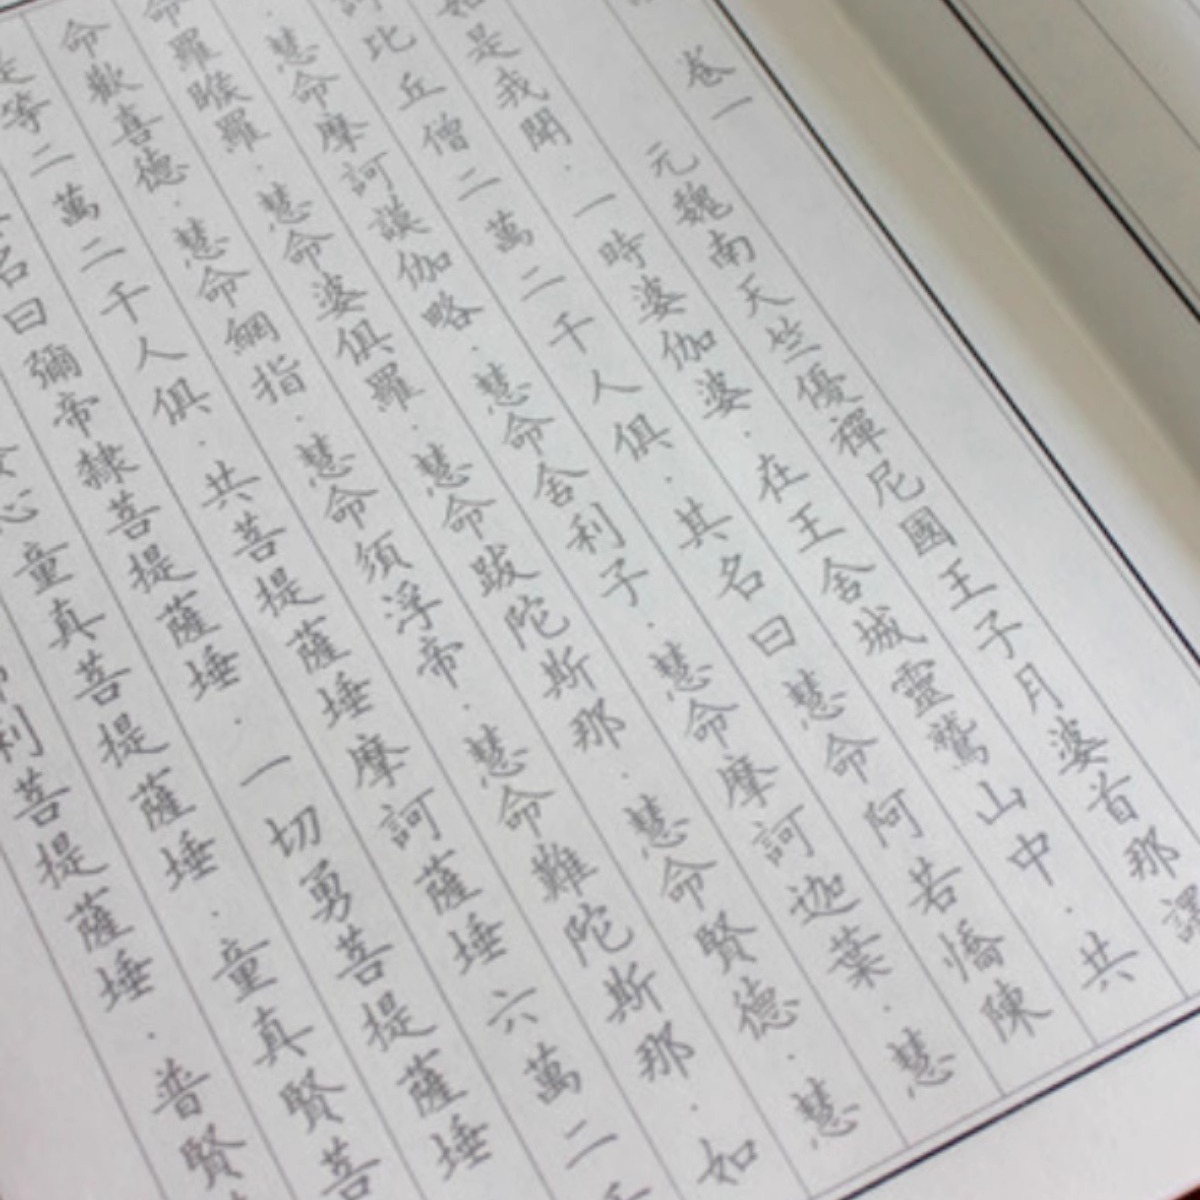 卷一
元魏南天竺優禪尼國王子月婆首那譯
如是我聞．一時婆伽婆．在王舍城靈鷲山中．共
訶比丘僧二萬二千人俱．其名曰慧命阿若憍陳
．慧命摩訶謨伽略．慧命舍利子．慧命摩訶迦葉．慧
命羅睺羅．慧命婆俱羅．慧命跋陀斯那．慧命賢德．慧
命歡喜德．慧命網指．慧命須浮帝．慧命難陀斯那．如
是等二萬二千人俱．共菩提薩埵摩訶薩埵六萬二千
名曰彌帝隸菩提薩埵．一切勇菩提薩埵
心童真菩提薩埵．童真賢菩
利菩提薩埵．普賢